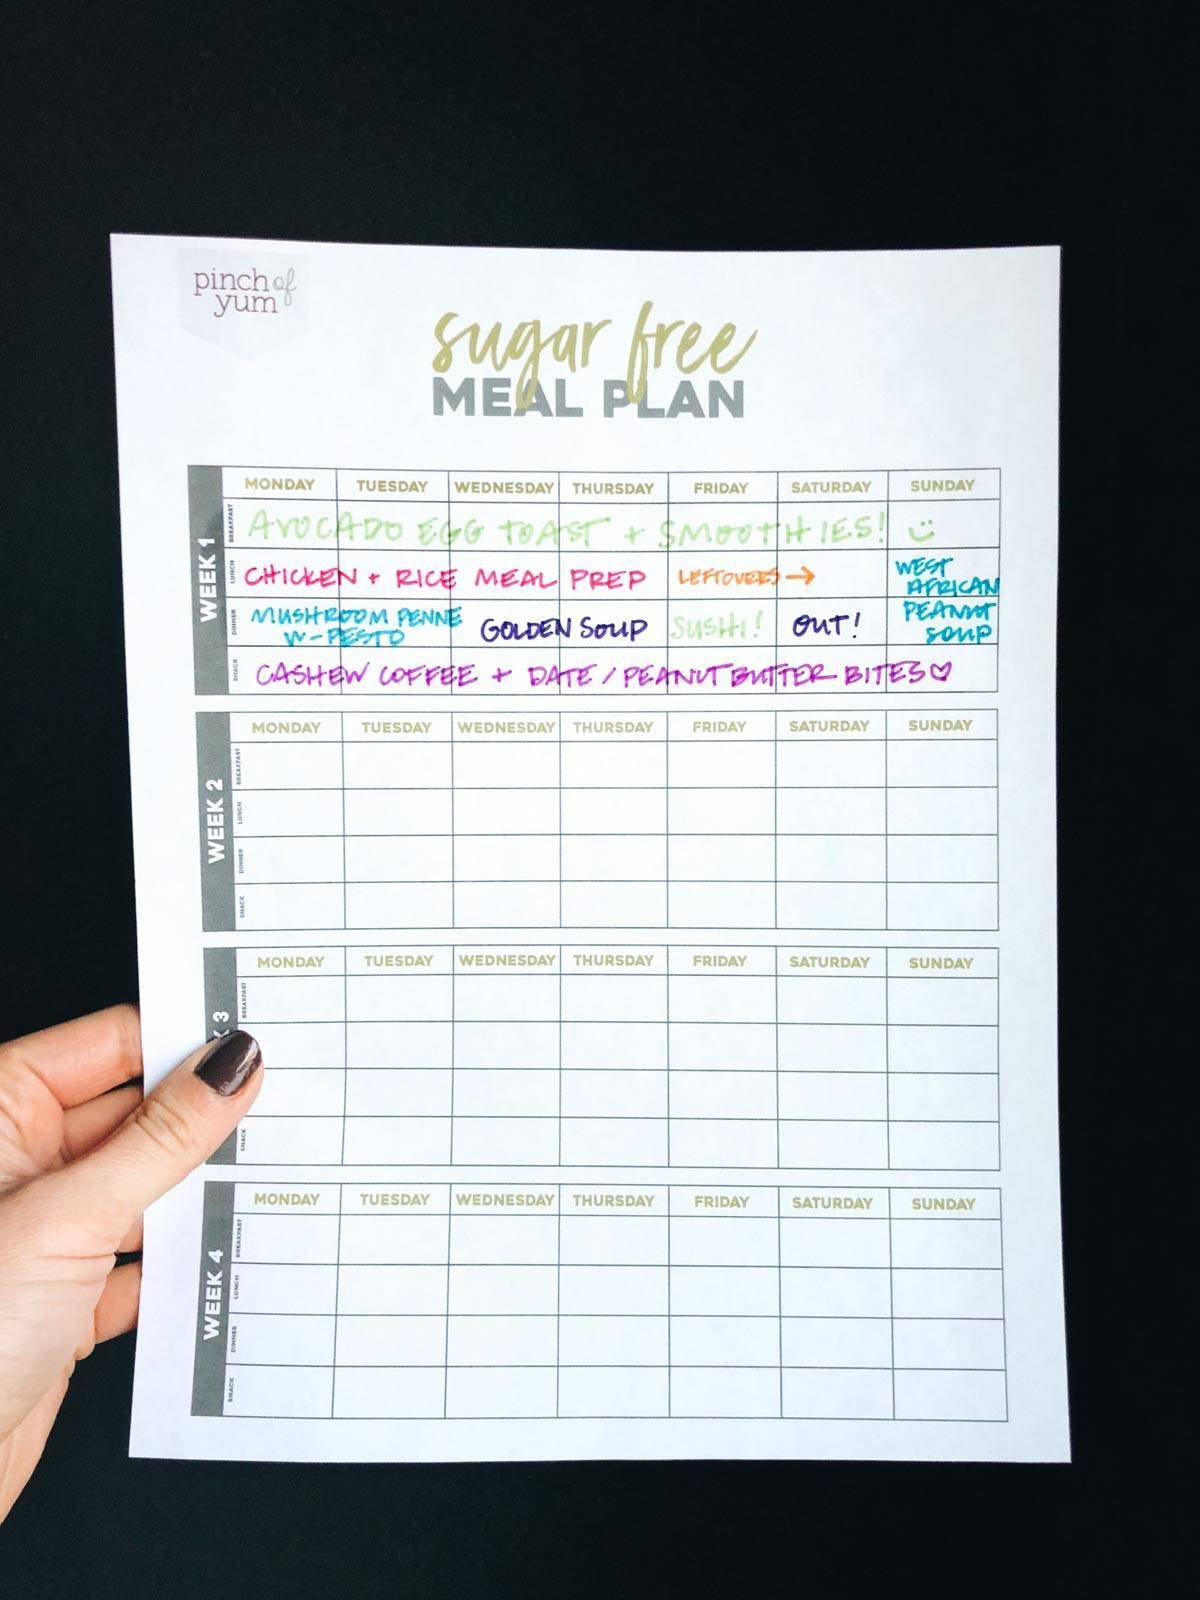 pinch of
yum
sugar free
MEAL PLAN
WEEK 1
MONDAY TUESDAY WEDNESDAY THURSDAY FRIDAY SATURDAY SUNDAY
BREAKFAST AVOCADO EGG TOAST + SMOOTHIES!
LUNCH CHICKEN + RICE MEAL PREP LEFTOVERS → WEST
AFRICAN
DINNER MUSHROOM PENNE GOLDEN SOUP SUSHI! OUT! PEANUT
W-PESTO SOUP
SNACK CASHEW COFFEE + DATE / PEANUT BUTTER BITES♡
WEEK 2
MONDAY TUESDAY WEDNESDAY THURSDAY FRIDAY SATURDAY SUNDAY
BREAKFAST
LUNCH
DINNER
SNACK
K 3
MONDAY TUESDAY WEDNESDAY THURSDAY FRIDAY SATURDAY SUNDAY
BREAKFAST
SNACK
WEEK 4
MONDAY TUESDAY WEDNESDAY THURSDAY FRIDAY SATURDAY SUNDAY
BREAKFAST
LUNCH
DINNER
SNACK